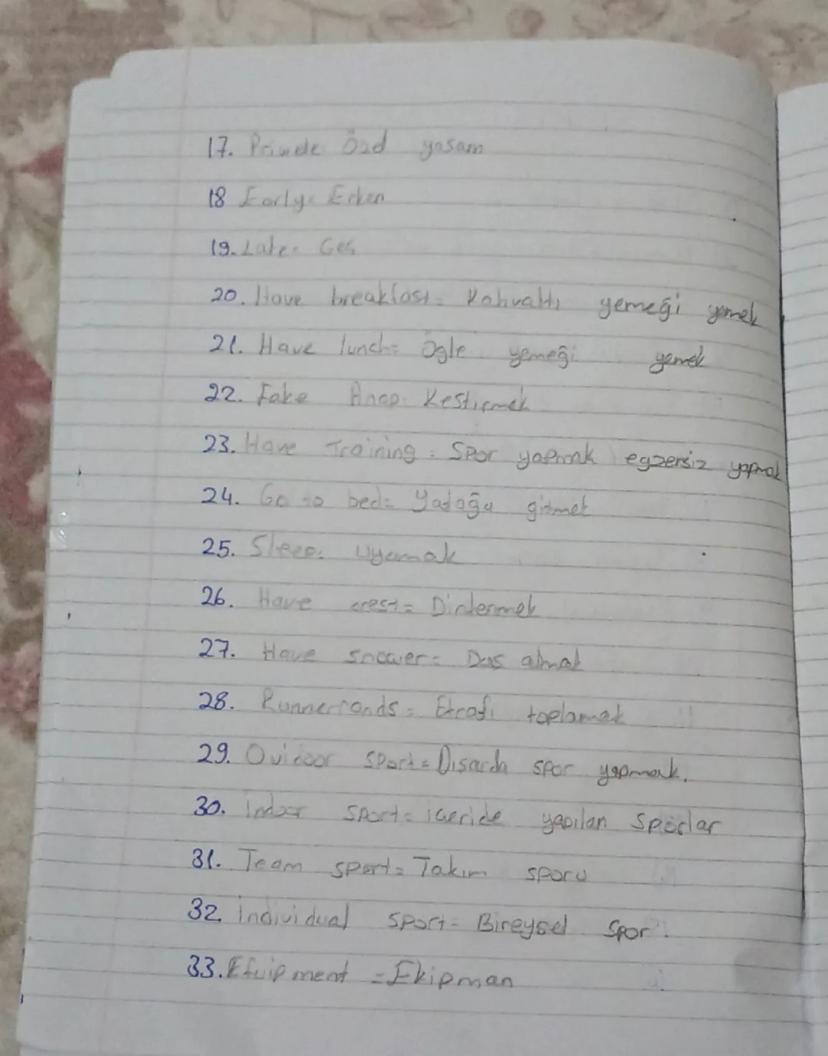 17. Private Özel yaşam
18 Early= Erken
19. Late= Geç
20. Have breakfast= Kahvaltı yemeği yemek
21. Have lunch= Öğle yemeği yemek
22. Take Anap= Kestirmek
23. Have Training= Spor yapmak egzersiz yapmak
24. Go to bed= Yatağa gitmek
25. Sleep= Uyumak
26. Have arest= Dinlenmek
27. Have shower= Duş almak
28. = Etrafı toplamak
29. Outdoor sport= Dışarda spor yapmak.
30. İndoor sport= içeride yapılan sporlar
31. Team sport= Takım sporu
32. individual sport= Bireysel spor.
33. Efuipment = Ekipman